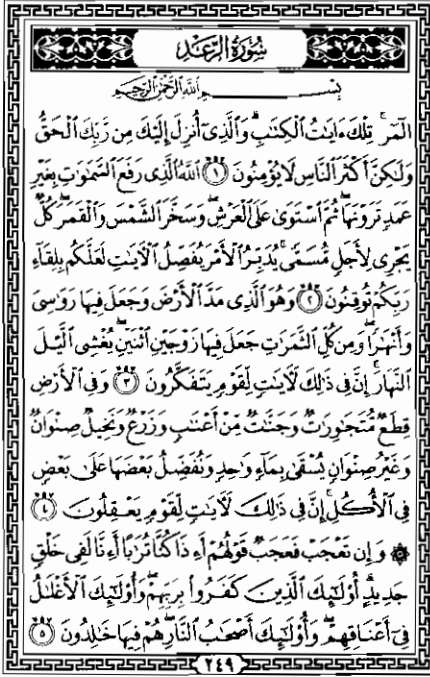 سُورَةُ الرَّعْدِ
بِسْمِ اللَّهِ الرَّحْمَٰنِ الرَّحِيمِ
الٓمٓرۚ تِلۡكَ ءَايَٰتُ ٱلۡكِتَٰبِۗ وَٱلَّذِيٓ أُنزِلَ إِلَيۡكَ مِن رَّبِّكَ ٱلۡحَقُّ
وَلَٰكِنَّ أَكۡثَرَ ٱلنَّاسِ لَا يُؤۡمِنُونَ ١ ٱللَّهُ ٱلَّذِي رَفَعَ ٱلسَّمَٰوَٰتِ بِغَيۡرِ
عَمَدٖ تَرَوۡنَهَاۖ ثُمَّ ٱسۡتَوَىٰ عَلَى ٱلۡعَرۡشِۖ وَسَخَّرَ ٱلشَّمۡسَ وَٱلۡقَمَرَۖ كُلّٞ
يَجۡرِي لِأَجَلٖ مُّسَمّٗىۚ يُدَبِّرُ ٱلۡأَمۡرَ يُفَصِّلُ ٱلۡأٓيَٰتِ لَعَلَّكُم بِلِقَآءِ
رَبِّكُمۡ تُوقِنُونَ ٢ وَهُوَ ٱلَّذِي مَدَّ ٱلۡأَرۡضَ وَجَعَلَ فِيهَا رَوَٰسِيَ
وَأَنۡهَٰرٗاۖ وَمِن كُلِّ ٱلثَّمَرَٰتِ جَعَلَ فِيهَا زَوۡجَيۡنِ ٱثۡنَيۡنِۖ يُغۡشِي ٱلَّيۡلَ
ٱلنَّهَارَۚ إِنَّ فِي ذَٰلِكَ لَأٓيَٰتٖ لِّقَوۡمٖ يَتَفَكَّرُونَ ٣ وَفِي ٱلۡأَرۡضِ
قِطَعٞ مُّتَجَٰوِرَٰتٞ وَجَنَّٰتٞ مِّنۡ أَعۡنَٰبٖ وَزَرۡعٞ وَنَخِيلٞ صِنۡوَانٞ
وَغَيۡرُ صِنۡوَانٖ يُسۡقَىٰ بِمَآءٖ وَٰحِدٖ وَنُفَضِّلُ بَعۡضَهَا عَلَىٰ بَعۡضٖ
فِي ٱلۡأُكُلِۚ إِنَّ فِي ذَٰلِكَ لَأٓيَٰتٖ لِّقَوۡمٖ يَعۡقِلُونَ ٤
۞ وَإِن تَعۡجَبۡ فَعَجَبٞ قَوۡلُهُمۡ أَءِذَا كُنَّا تُرَٰبًا أَءِنَّا لَفِي خَلۡقٖ
جَدِيدٍۗ أُوْلَٰٓئِكَ ٱلَّذِينَ كَفَرُواْ بِرَبِّهِمۡۖ وَأُوْلَٰٓئِكَ ٱلۡأَغۡلَٰلُ
فِيٓ أَعۡنَاقِهِمۡۖ وَأُوْلَٰٓئِكَ أَصۡحَٰبُ ٱلنَّارِۖ هُمۡ فِيهَا خَٰلِدُونَ ٥
٢٤٩